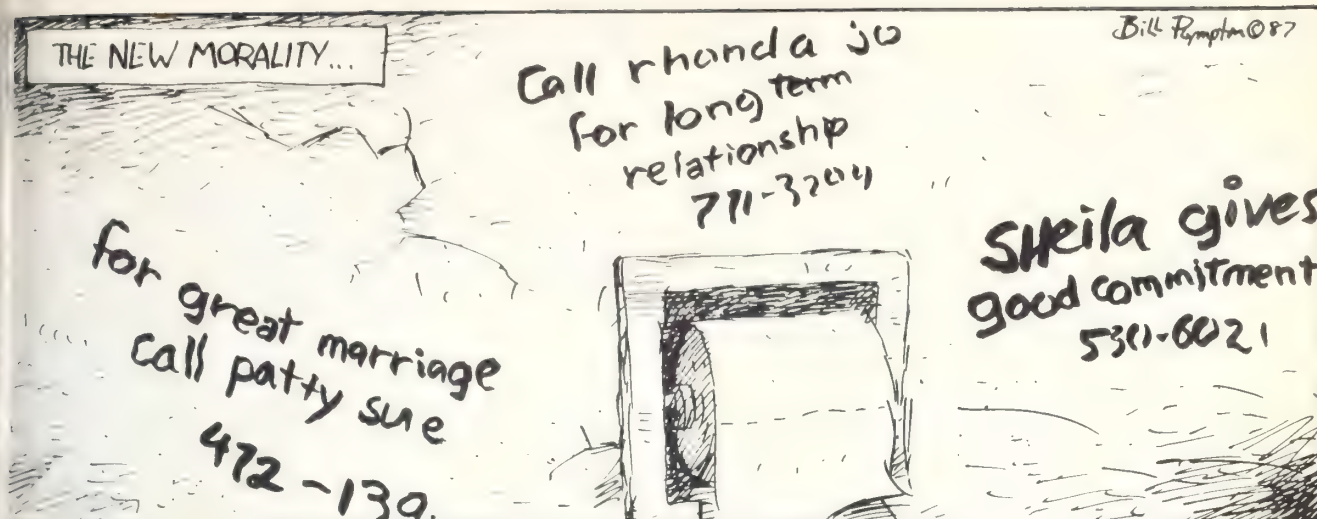 THE NEW MORALITY...
Bill Plympton © 87
Call rhonda jo
for long term
relationship
for great marriage
call patty sue
472-130
Sheila gives
good commitment